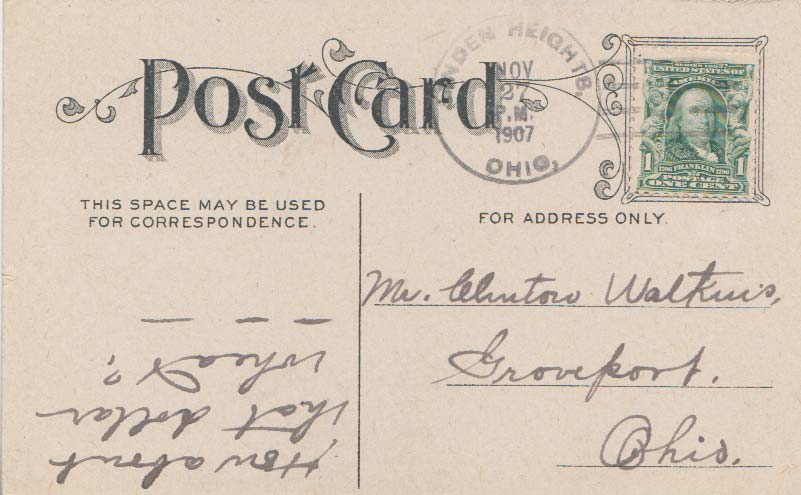 Post Card
LINDEN HEIGHTS.
NOV
27
P.M.
1907
OHIO.
UNITED STATES OF
AMERICA
1 1706 FRANKLIN 1790 1
POSTAGE
ONE CENT
THIS SPACE MAY BE USED
FOR CORRESPONDENCE.
FOR ADDRESS ONLY.
Mr. Clinton Watkins,
Groveport.
Ohio.
How about
that dollar
wheat?
— — —